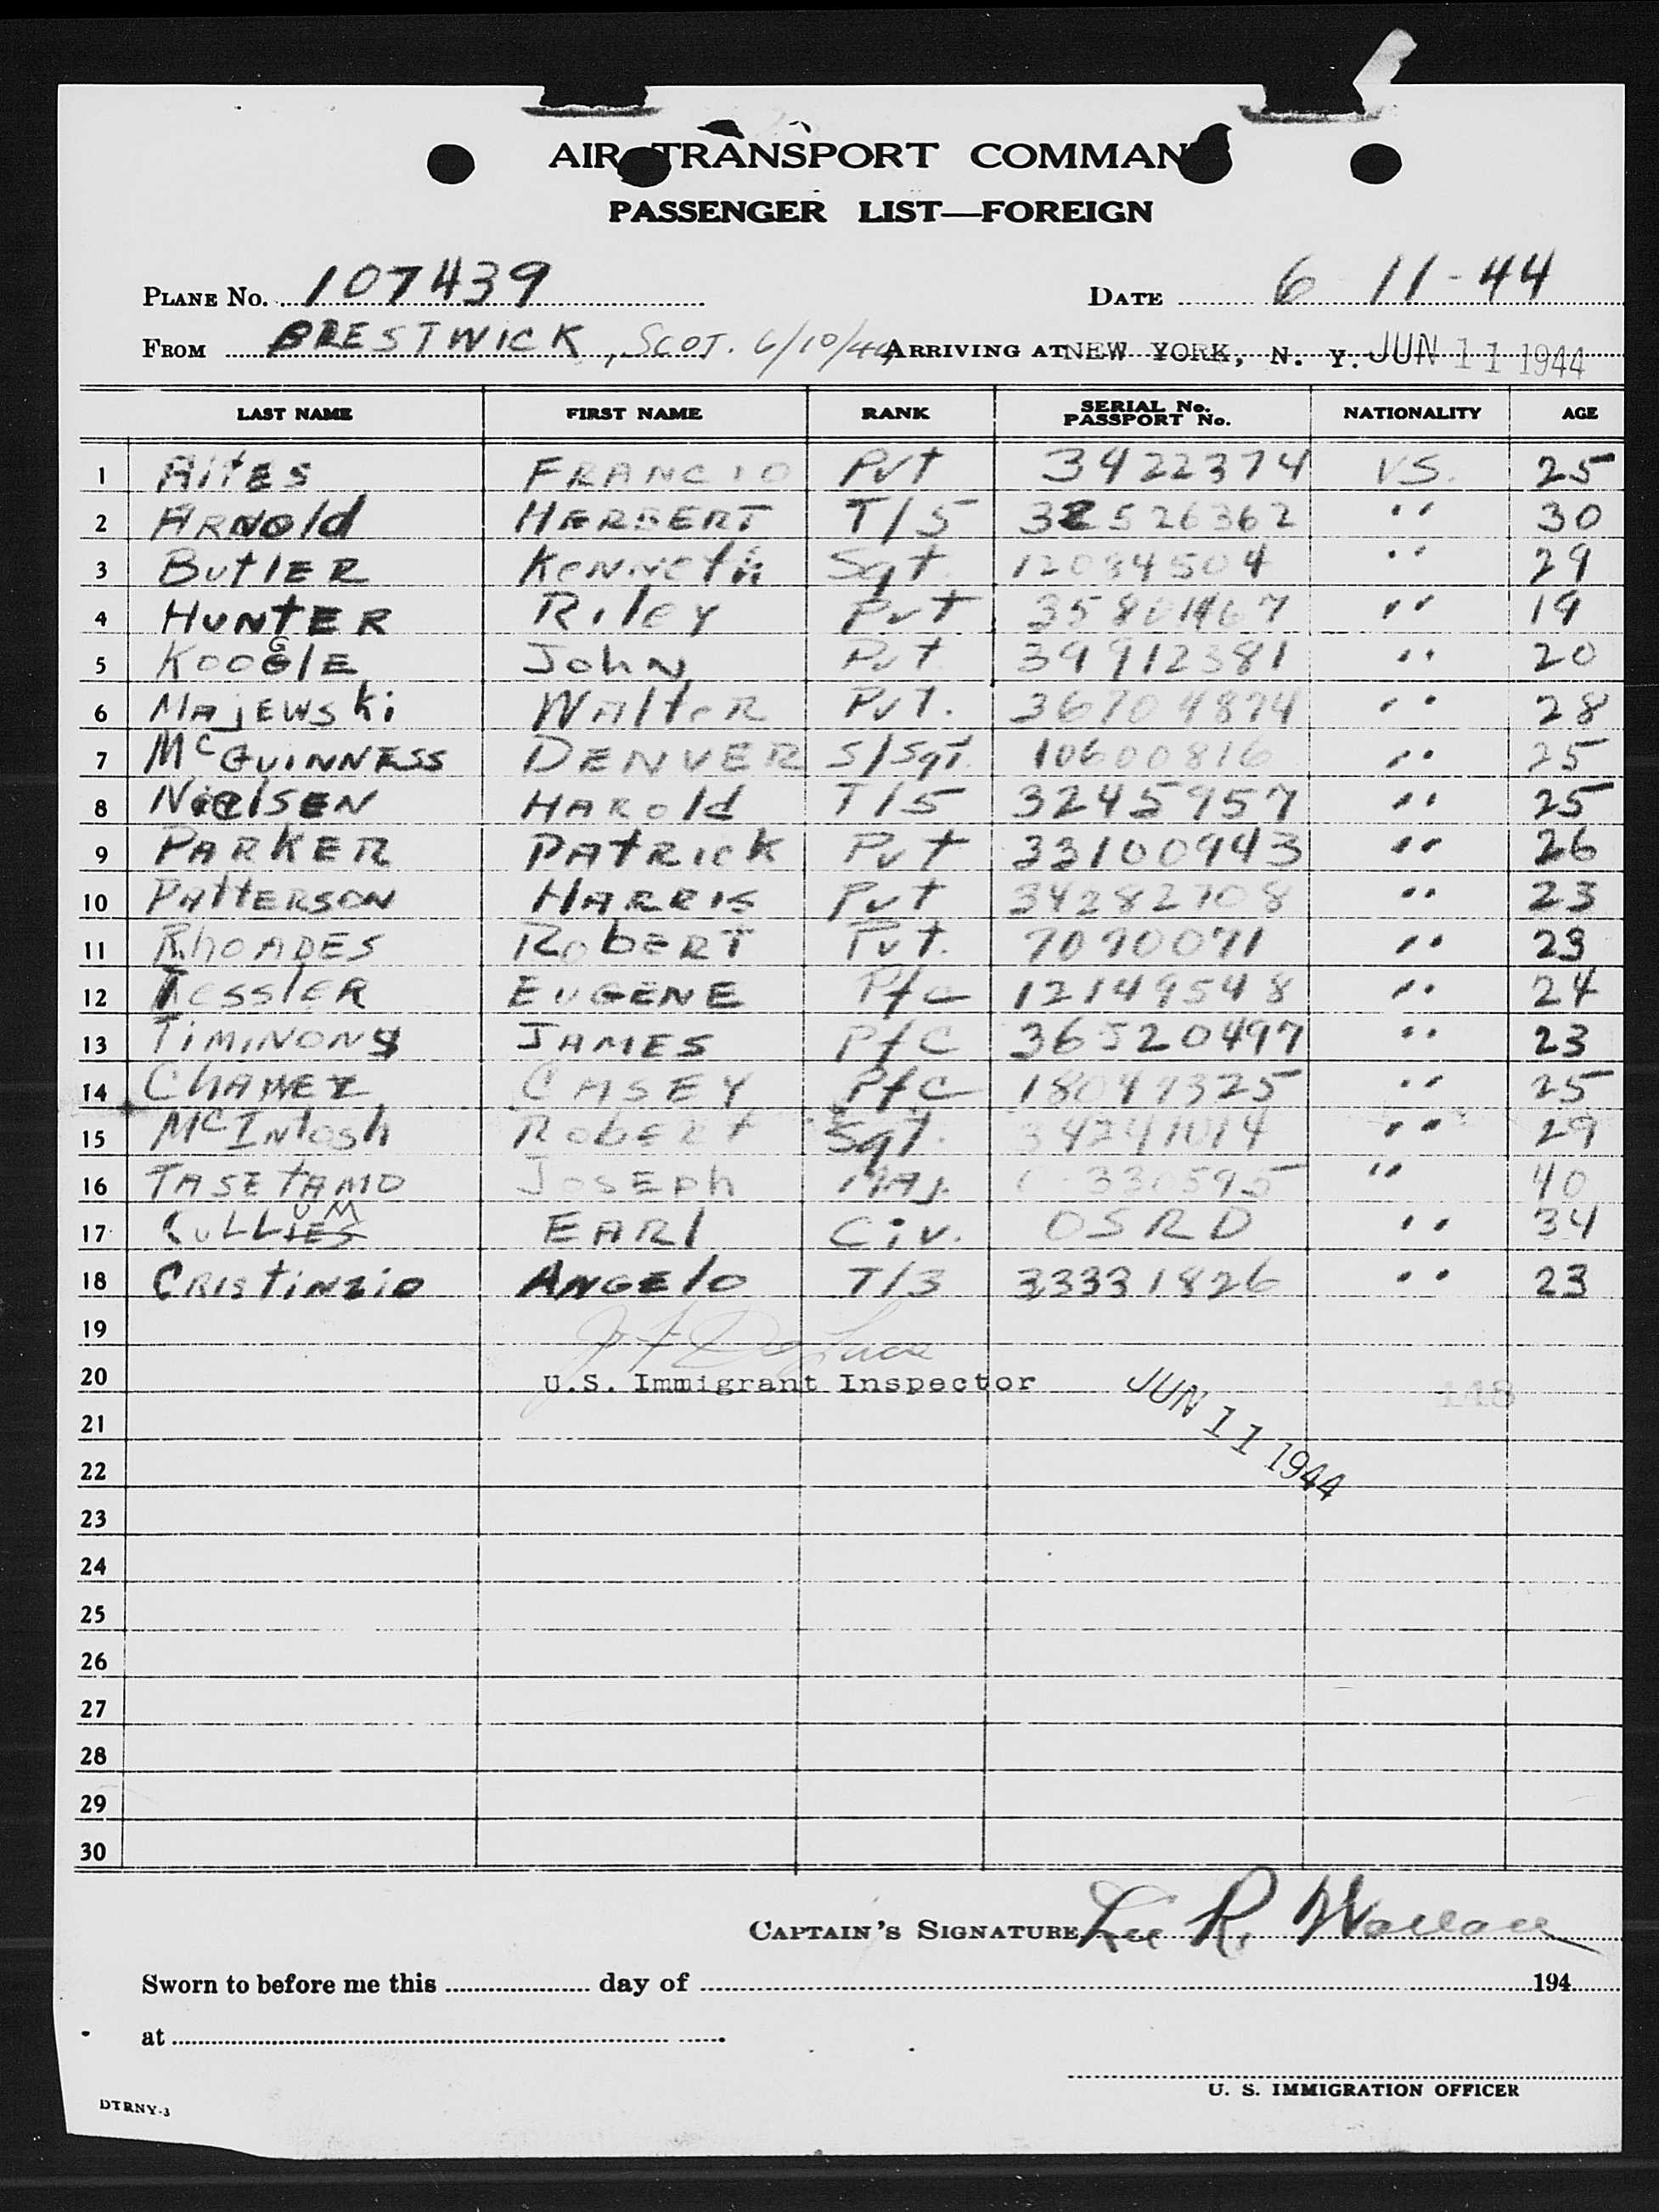 AIR TRANSPORT COMMAND
PASSENGER LIST—FOREIGN
PLANE No. 107439 DATE 6-11-44
FROM PRESTWICK, SCOT. 6/10/44 ARRIVING AT NEW YORK, N. Y. JUN 11 1944
LAST NAME FIRST NAME RANK SERIAL No. PASSPORT No. NATIONALITY AGE
1 AitES Pvt 3422374 US. 25
2 ARNold HERBERT T/5 32526362 " 30
3 ButlER KENNeth Sgt. 12084504 " 29
4 HUNtER Riley Pvt " 19
5 KOOGlE JohN Pvt 39912381 " 20
6 MAjEWski WAlteR Pvt. " 28
7 McGUINNESS DENVER S/Sgt. 10600816 " 25
8 NielSEN HARold T/5 32459 57 " 25
9 PARKER PAtRick Pvt 33100943 " 26
10 PAttERSON HARRIS Pvt 34282708 " 23
11 RhoADES RobERT Pvt. 7070071 " 23
12 TesslER EUGENE Pfc 12149548 " 24
13 TiMiNONy JAMES PfC 36520497 " 23
14 CHAWEZ CASEY PfC 18049325 " 25
15 McINtosh RobERt Sgt. 34241014 " 29
16 TASEtAMO JosEph MAj. " 40
17 EARl Civ. OSRD " 34
18 CRistiNzio ANGElo T/3 33331826 " 23
19
20 U.S. Immigrant Inspector JUN 11 1944 148
21
22
23
24
25
26
27
28
29
30
CAPTAIN'S SIGNATURE Lee R. Wallace
Sworn to before me this day of 194
at
U. S. IMMIGRATION OFFICER
DTRNY-3